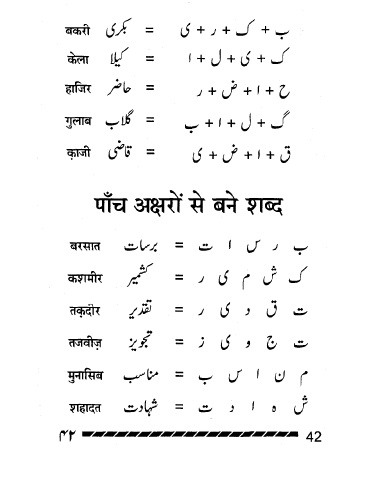 ب + ک + ر + ی = بکری बकरी
ک + ی + ل + ا = کیلا केला
ح + ا + ض + ر = حاضر हाजिर
گ + ل + ا + ب = گلاب गुलाब
ق + ا + ض + ی = قاضی क़ाजी
पाँच अक्षरों से बने शब्द
ب ر س ا ت = برسات बरसात
ک ش م ی ر = کشمیر कशमीर
ت ق د ی ر = تقدیر तक़दीर
ت ج و ی ز = تجویز तजवीज़
م ن ا س ب = مناسب मुनासिब
ش ہ ا د ت = شہادت शहादत
۴۲ 42